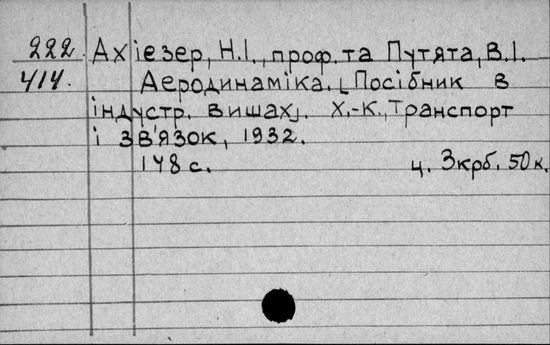 222. Ахіезер, Н.І., проф. та Путята, В.І.
414. Аеродинаміка. [Посібник в
індустр. вишах]. Х.-К., Транспорт
і зв'язок, 1932.
148 с. ц. 3 крб. 50 к.